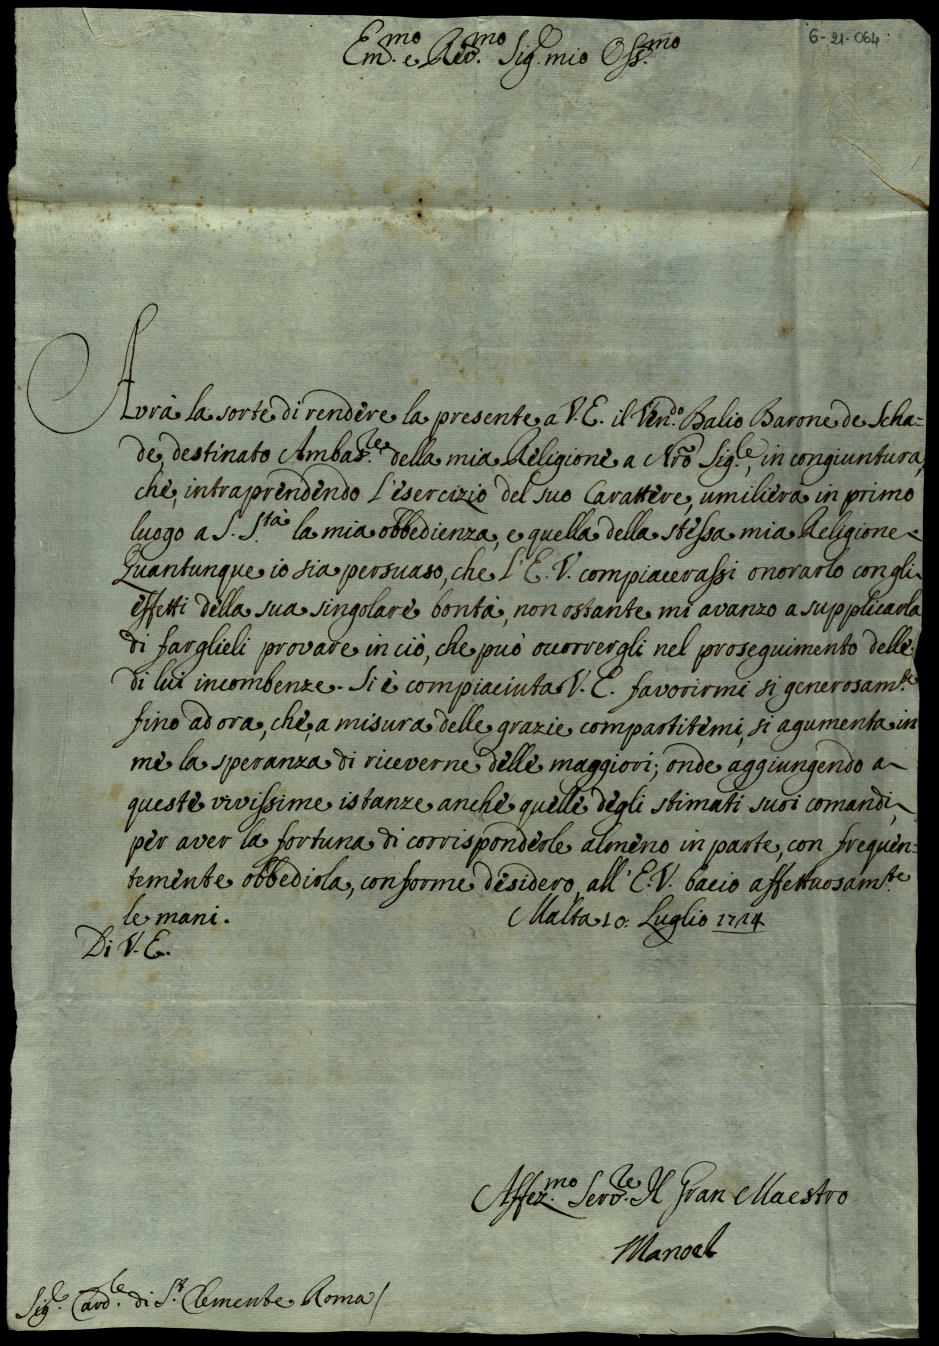 6-21-064
Em.mo e Rev.mo Sig.r mio Oss.mo
Avrà la sorte di rendere la presente a V.E. il Ven.do Balio Barone de Scha=
de, destinato Ambas.re della mia Religione a Nro Sig.re, in congiuntura,
che, intraprendendo l'esercizio del suo Carattere, umilierà in primo
luogo a S. S.tà la mia obbedienza, e quella della stessa mia Religione
Quantunque io sia persuaso, che l'E.V. compiacerassi onorarlo con gli
effetti della sua singolare bontà, non ostante mi avanzo a supplicarla
di farglieli provare in ciò, che può occorrergli nel proseguimento delle
di lui incombenze. Si è compiaciuta V.E. favorirmi si generosam.te
fino ad ora, che, a misura delle grazie compartitemi, si agumenta in
me la speranza di riceverne delle maggiori; onde aggiungendo a
queste vivissime istanze anche quelle degli stimati suoi comandi,
per aver la fortuna di corrisponderle almeno in parte, con frequen=
temente obbedirla, conforme desidero, all'E.V. bacio affettuosam.te
le mani. Malta 10. Luglio 1724
Di V.E.
Affez.mo Serv.re Il Gran Maestro
Manoel
Sig.r Card.le di S.t Clemente Roma/